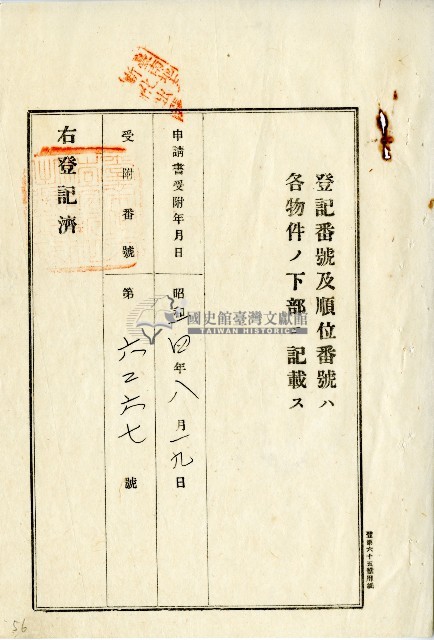 登記番號及順位番號ハ
各物件ノ下部ニ記載ス
申請書受附年月日 昭和一四年八月一九日
受附番號 第六二六七號
右登記濟
國史館臺灣文獻館
TAIWAN HISTORICA
56